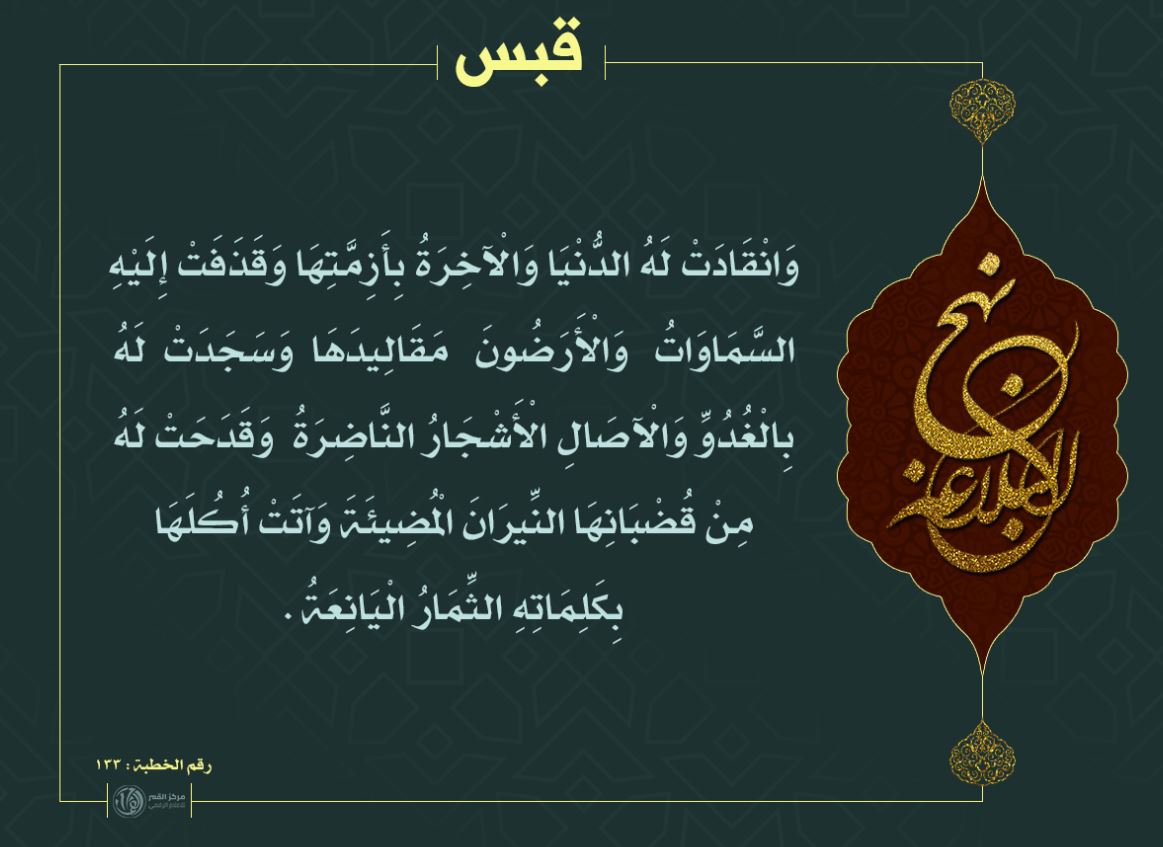 قبس
وَانْقَادَتْ لَهُ الدُّنْيَا وَالْآخِرَةُ بِأَزِمَّتِهَا وَقَذَفَتْ إِلَيْهِ
السَّمَاوَاتُ وَالْأَرَضُونَ مَقَالِيدَهَا وَسَجَدَتْ لَهُ
بِالْغُدُوِّ وَالْآصَالِ الْأَشْجَارُ النَّاضِرَةُ وَقَدَحَتْ لَهُ
مِنْ قُضْبَانِهَا النِّيرَانَ الْمُضِيئَةَ وَآتَتْ أُكُلَهَا
بِكَلِمَاتِهِ الثِّمَارُ الْيَانِعَةُ .
نهج
البلاغة
رقم الخطبة : ١٣٣
مركز القمر
للاعلام الرقمي